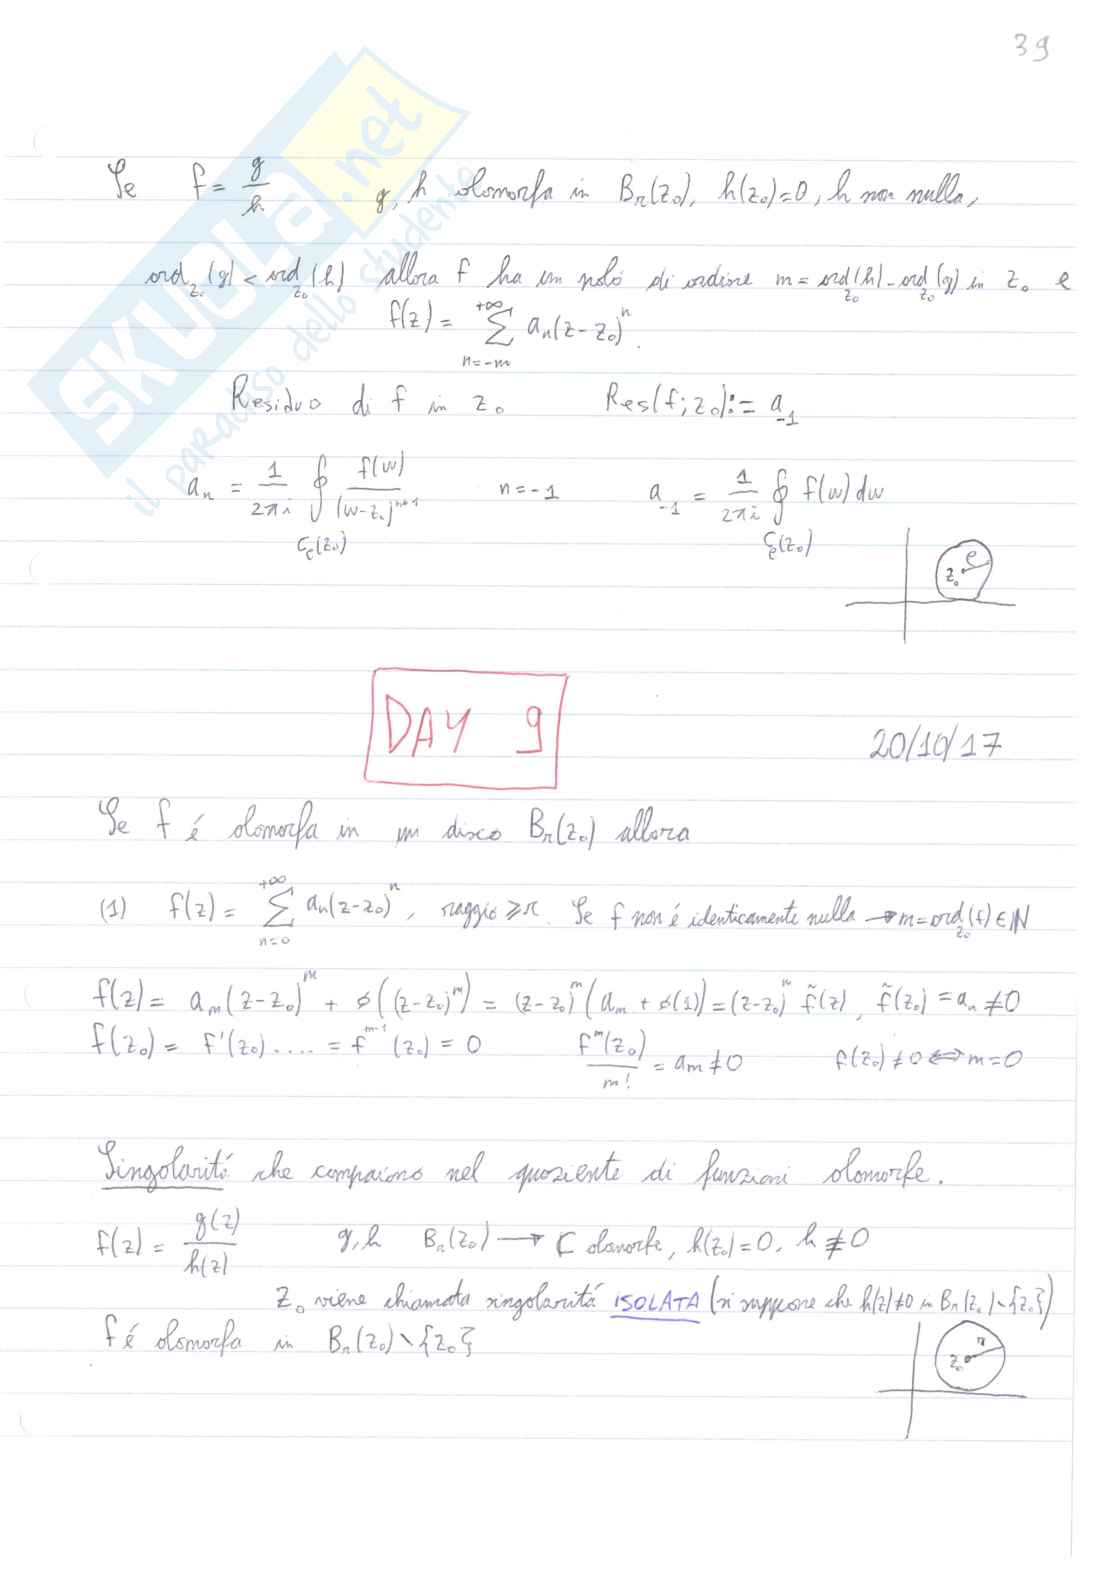 39
SKUOLA.net
il paradiso dello studente
Se f = g/h g, h olomorfa in B_r(z_0), h(z_0)=0, h non nulla,
ord_{z_0}(g) < ord_{z_0}(h) allora f ha un polo di ordine m = ord_{z_0}(h) - ord_{z_0}(g) in z_0 e
f(z) = \sum_{n=-m}^{+∞} a_n(z-z_0)^n.
Residuo di f in z_0 Res(f; z_0) := a_{-1}
a_n = 1/(2πi) ∮_{C_ρ(z_0)} f(w)/(w-z_0)^{n+1} n=-1 a_{-1} = 1/(2πi) ∮_{C_ρ(z_0)} f(w) dw
z_0 ρ
DAY 9
20/10/17
Se f é olomorfa in un disco B_r(z_0) allora
(1) f(z) = \sum_{n=0}^{+∞} a_n(z-z_0)^n, raggio ≥ r. Se f non é identicamente nulla → m = ord_{z_0}(f) ∈ ℕ
f(z) = a_m(z-z_0)^m + o((z-z_0)^m) = (z-z_0)^m (a_m + o(1)) = (z-z_0)^n f̃(z), f̃(z_0) = a_n ≠ 0
f(z_0) = f'(z_0) .... = f^{m-1}(z_0) = 0 f^m(z_0)/m! = a_m ≠ 0 f(z_0) ≠ 0 ⟺ m = 0
Singolarité che compaiono nel quoziente di funzioni olomorfe.
f(z) = g(z)/h(z) g, h B_r(z_0) → ℂ olomorfe, h(z_0)=0, h ≢ 0
z_0 viene chiamata singolaritá ISOLATA (si suppone che h(z) ≠ 0 in B_r(z_0)∖{z_0})
f é olomorfa in B_r(z_0)∖{z_0}
z_0 r